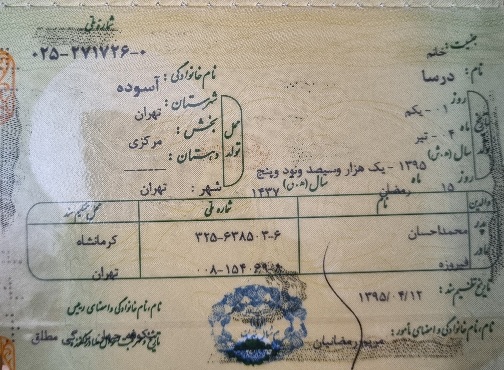 شماره ملی
۰۲۵-۲۷۱۷۲۶-۰
جنسیت: خانم
نام: درسا
نام خانوادگی: آسوده
روز ۰۱ - یکم
ماه ۰۴ - تیر
سال (ه.ش) ۱۳۹۵ - یک هزار و سیصد و نود و پنج
روز ۱۵ ماه رمضان سال (ه.ق) ۱۴۳۷
محل تولد
شهرستان: تهران
بخش: مرکزی
دهستان: ------
شهر: تهران
والدین نام شماره ملی
پدر محمداحسان ۳۲۵-۶۳۸۵۰۳-۶ کرمانشاه
مادر فیروزه تهران
تاریخ تنظیم سند: ۱۳۹۵/۰۴/۱۲
نام، نام خانوادگی و امضای مأمور: مریم رمضانیان
نام، نام خانوادگی و امضای رئیس
مطلق